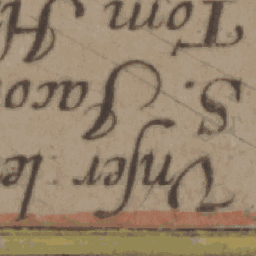 Vnser le
S. Jaco
Tom H